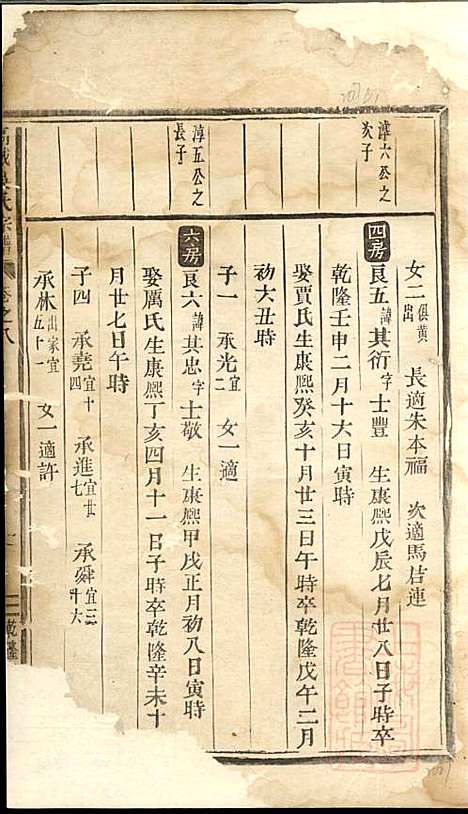 淳六公之
次子
女二俱黃出 長適朱本福 次適馬荅連
四房 良五諱其衍字士豐 生康熙戊辰七月廿八日子時卒
乾隆壬申二月十六日寅時
娶賈氏生康熙癸亥十月廿三日午時卒乾隆戊午二月
初六丑時
子一 承光宜二 女一適
淳五公之
長子
六房 良六諱其忠字士敬 生康熙甲戌正月初八日寅時
娶厲氏生康熙丁亥四月十一日子時卒乾隆辛未十
月廿七日午時
子四 承堯宜十四 承進宜廿七 承舜宜三十六
承林出家宜五十一 女一適許
氏宗譜 卷之八
乾隆